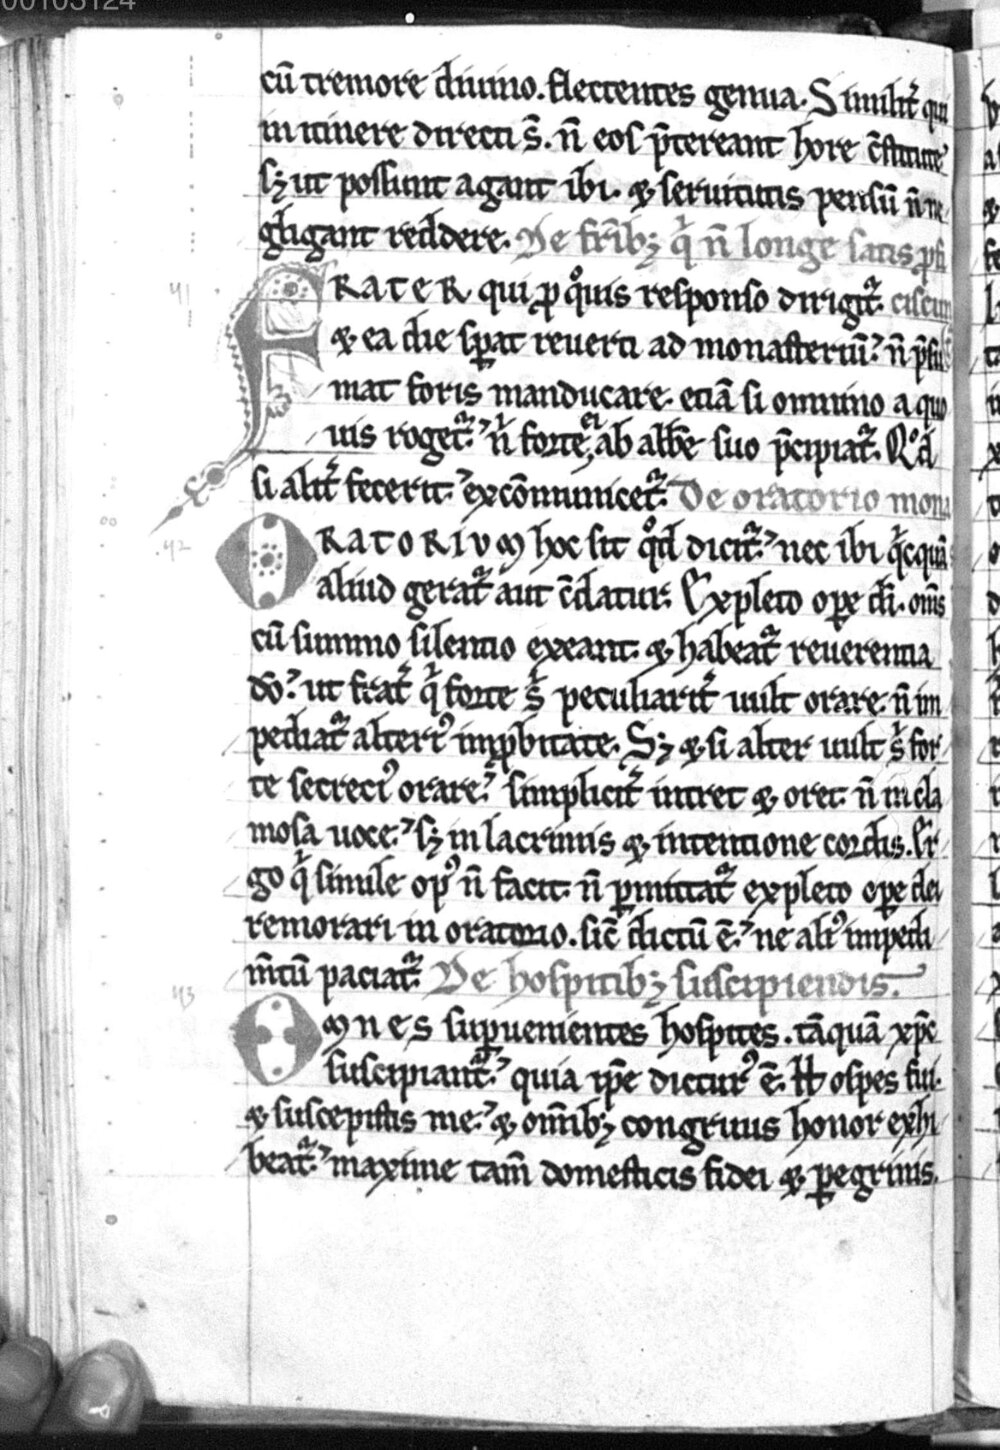 00105124
cū tremore diuino. flectentes genua. Similit̄ qui
in itinere directi s̄. n̄ eos p̄tereant hore c̄stitute
sꝫ ut possunt agant ibi. ⁊ seruitutis pensū n̄ ne
gligant reddere. De fr̄ibꝫ q̄ n̄ longe satis ꝓfi
FRATER qui ꝓ q̊uis responso dirigit̄. ciscun
⁊ ea die sꝑat reuerti ad monasteriū. n̄ p̄su
mat foris manducare. etiā si omnino a quo
uis roget̄. n̄ forte ei ab abbe suo p̄cipiat̄. Qd̊
si alit̄ fecerit. excōmunicet̄. De oratorio mona
ORATORIUM hoc sit qd̊ dicit̄. nec ibi q̄cquā
aliud gerat̄ aut c̄datur. Expleto oꝑe di. om̄s
cū summo silentio exeant. ⁊ habeat̄ reuerentia
do. ut frat̄ q̄ forte s̄ peculiarit̄ uult orare. n̄ im
pediat̄ alteriꝰ imꝓbitate. Sꝫ ⁊ si alter uult s̄ for
te secreciꝰ orare. simplicit̄ intret ⁊ oret. n̄ in cla
mosa uoce. sꝫ in lacrimis ⁊ intentione cordis. Er
go q̄ simile opꝰ n̄ facit. n̄ ꝑmittat̄ expleto oꝑe dei
remorari in oratorio. sic̄ dictū ē. ne aliꝰ impedi
m̄tū paciat̄. De hospitibꝫ suscipiendis.
OMNES supuenientes hospites. tāquā xp̄c
suscipiant̄. quia ip̄e dicturꝰ ē. Hospes fui.
⁊ suscepistis me. ⁊ om̄ibꝫ congruus honor exhi
beat̄. maxime tam̄ domesticis fidei ⁊ ꝑegrinis.
41
42
43